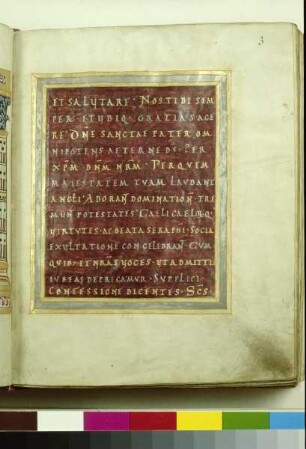 3
ET SALUTARE · NOS TIBI SEM
PER · ET UBIQ · GRATIAS AGE
RE · DNE SANCTAE PATER OM
NIPOTENS AETERNE DS · PER
XPM · DNM · NRM · PER QUEM
MAIESTATEM TUAM LAUDANT
ANGLI · ADORAN DOMINATION · TRE
MUN POTESTATES · CAELI CAELORQ ·
Q · VIRTUTES · AC BEATA SERAPHI · SOCIA
EXULTATIONE CONCELEBRAN · CUM
QUIB · ET NRAS VOCES · UT ADMITTI
IUBEAS DEPRECAMUR · SUPPLICI
CONFESSIONE DICENTES · SCS ·